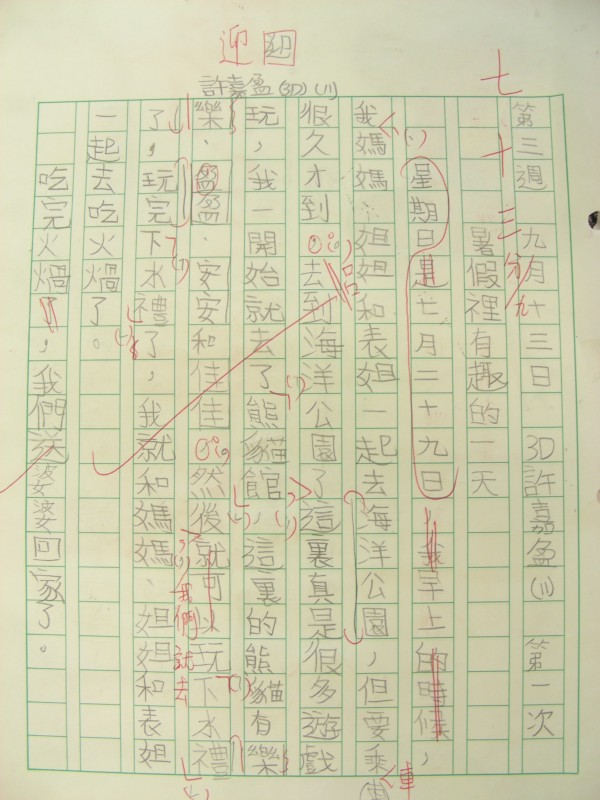 迎 迎
許嘉盈(3D)(11)
七十三分
第三週 九月十三日 3D許嘉盈(11) 第一次
暑假裡有趣的一天
星期日是七月二十九日早上的時候，
我媽媽、姐姐和表姐一起去海洋公園，但要乘
車
很久才到。去到海洋公園了這裏真是很多遊戲
玩，我一開始就去了熊貓館，這裏的熊貓有樂
樂、盈盈、安安和佳佳。然後就可以玩下水禮
了，玩完下水禮了，我就和媽媽、姐姐和表姐
我們就去
一起去吃火煱了。
吃完火煱了，我們送婆婆回家了。